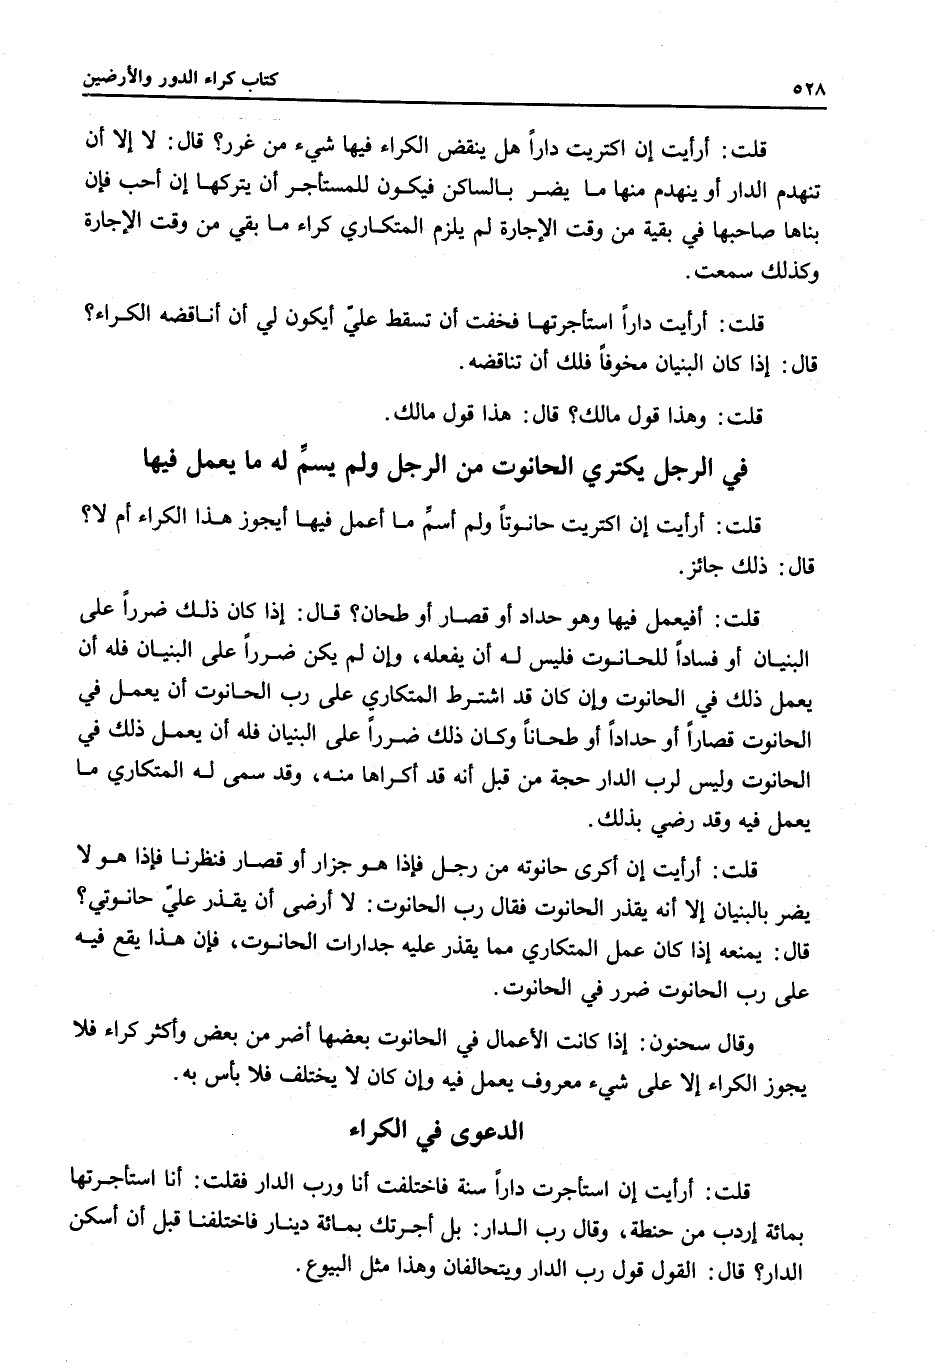 ٥٢٨
كتاب كراء الدور والأرضين
قلت: أرأيت إن اكتريت داراً هل ينقض الكراء فيها شيء من غرر؟ قال: لا إلا أن
تنهدم الدار أو ينهدم منها ما يضر بالساكن فيكون للمستأجر أن يتركها إن أحب فإن
بناها صاحبها في بقية من وقت الإجارة لم يلزم المتكاري كراء ما بقي من وقت الإجارة
وكذلك سمعت.
قلت: أرأيت داراً استأجرتها فخفت أن تسقط عليّ أيكون لي أن أناقضه الكراء؟
قال: إذا كان البنيان مخوفاً فلك أن تناقضه.
قلت: وهذا قول مالك؟ قال: هذا قول مالك.
في الرجل يكتري الحانوت من الرجل ولم يسمِّ له ما يعمل فيها
قلت: أرأيت إن اكتريت حانوتاً ولم أسمِّ ما أعمل فيها أيجوز هذا الكراء أم لا؟
قال: ذلك جائز.
قلت: أفيعمل فيها وهو حداد أو قصار أو طحان؟ قال: إذا كان ذلك ضرراً على
البنيان أو فساداً للحانوت فليس له أن يفعله، وإن لم يكن ضرراً على البنيان فله أن
يعمل ذلك في الحانوت وإن كان قد اشترط المتكاري على رب الحانوت أن يعمل في
الحانوت قصاراً أو حداداً أو طحاناً وكان ذلك ضرراً على البنيان فله أن يعمل ذلك في
الحانوت وليس لرب الدار حجة من قبل أنه قد أكراها منه، وقد سمى له المتكاري ما
يعمل فيه وقد رضي بذلك.
قلت: أرأيت إن أكرى حانوته من رجل فإذا هو جزار أو قصار فنظرنا فإذا هو لا
يضر بالبنيان إلا أنه يقذر الحانوت فقال رب الحانوت: لا أرضى أن يقذر عليّ حانوتي؟
قال: يمنعه إذا كان عمل المتكاري مما يقذر عليه جدارات الحانوت، فإن هذا يقع فيه
على رب الحانوت ضرر في الحانوت.
وقال سحنون: إذا كانت الأعمال في الحانوت بعضها أضر من بعض وأكثر كراء فلا
يجوز الكراء إلا على شيء معروف يعمل فيه وإن كان لا يختلف فلا بأس به.
الدعوى في الكراء
قلت: أرأيت إن استأجرت داراً سنة فاختلفت أنا ورب الدار فقلت: أنا استأجرتها
بمائة إردب من حنطة، وقال رب الدار: بل أجرتك بمائة دينار فاختلفنا قبل أن أسكن
الدار؟ قال: القول قول رب الدار ويتحالفان وهذا مثل البيوع.